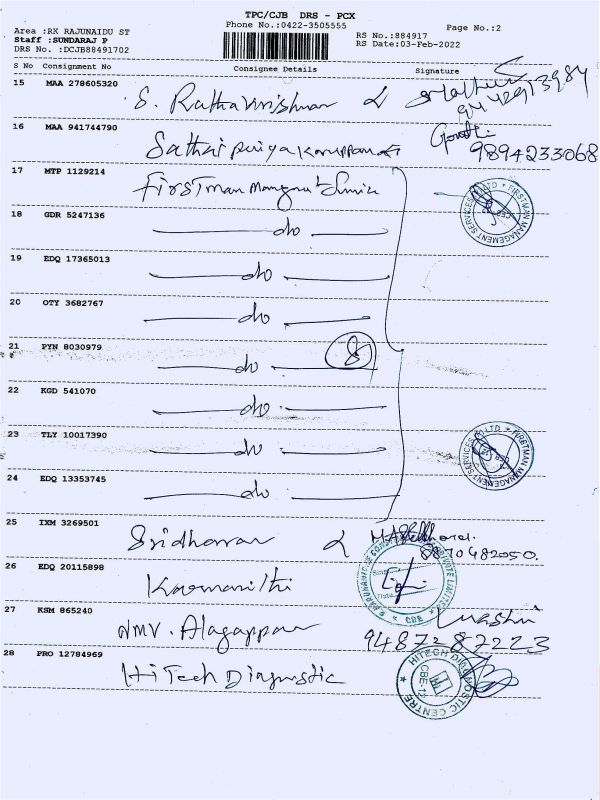 TPC/CJB DRS - PCX
Phone No.:0422-3505555
Page No.:2
Area :RK RAJUNAIDU ST
Staff :SUNDARAJ P
DRS No. :DCJB88491702
RS No.:884917
RS Date:03-Feb-2022
S No Consignment No Consignee Details Signature
15 MAA 278605320
S. Rathakrishnan
16 MAA 941744790
9894233068
17 MTP 1129214
18 GDR 5247136
do
19 EDQ 17365013
do
20 OTY 3682767
do
21 PYN 8030979
do 8
22 KGD 541070
do
23 TLY 10017390
do
24 EDQ 13353745
do
25 IXM 3269501
Sridharan
8870482050.
26 EDQ 20115898
27 KSM 865240
Alagappan
9487287223
28 PRO 12784969
HiTech Diagnostic
FIRSTMAN MANAGEMENT SERVICES (P) LTD
FIRSTMAN MANAGEMENT SERVICES (P) LTD
HITECH DIAGNOSTIC CENTRE
CBE-12